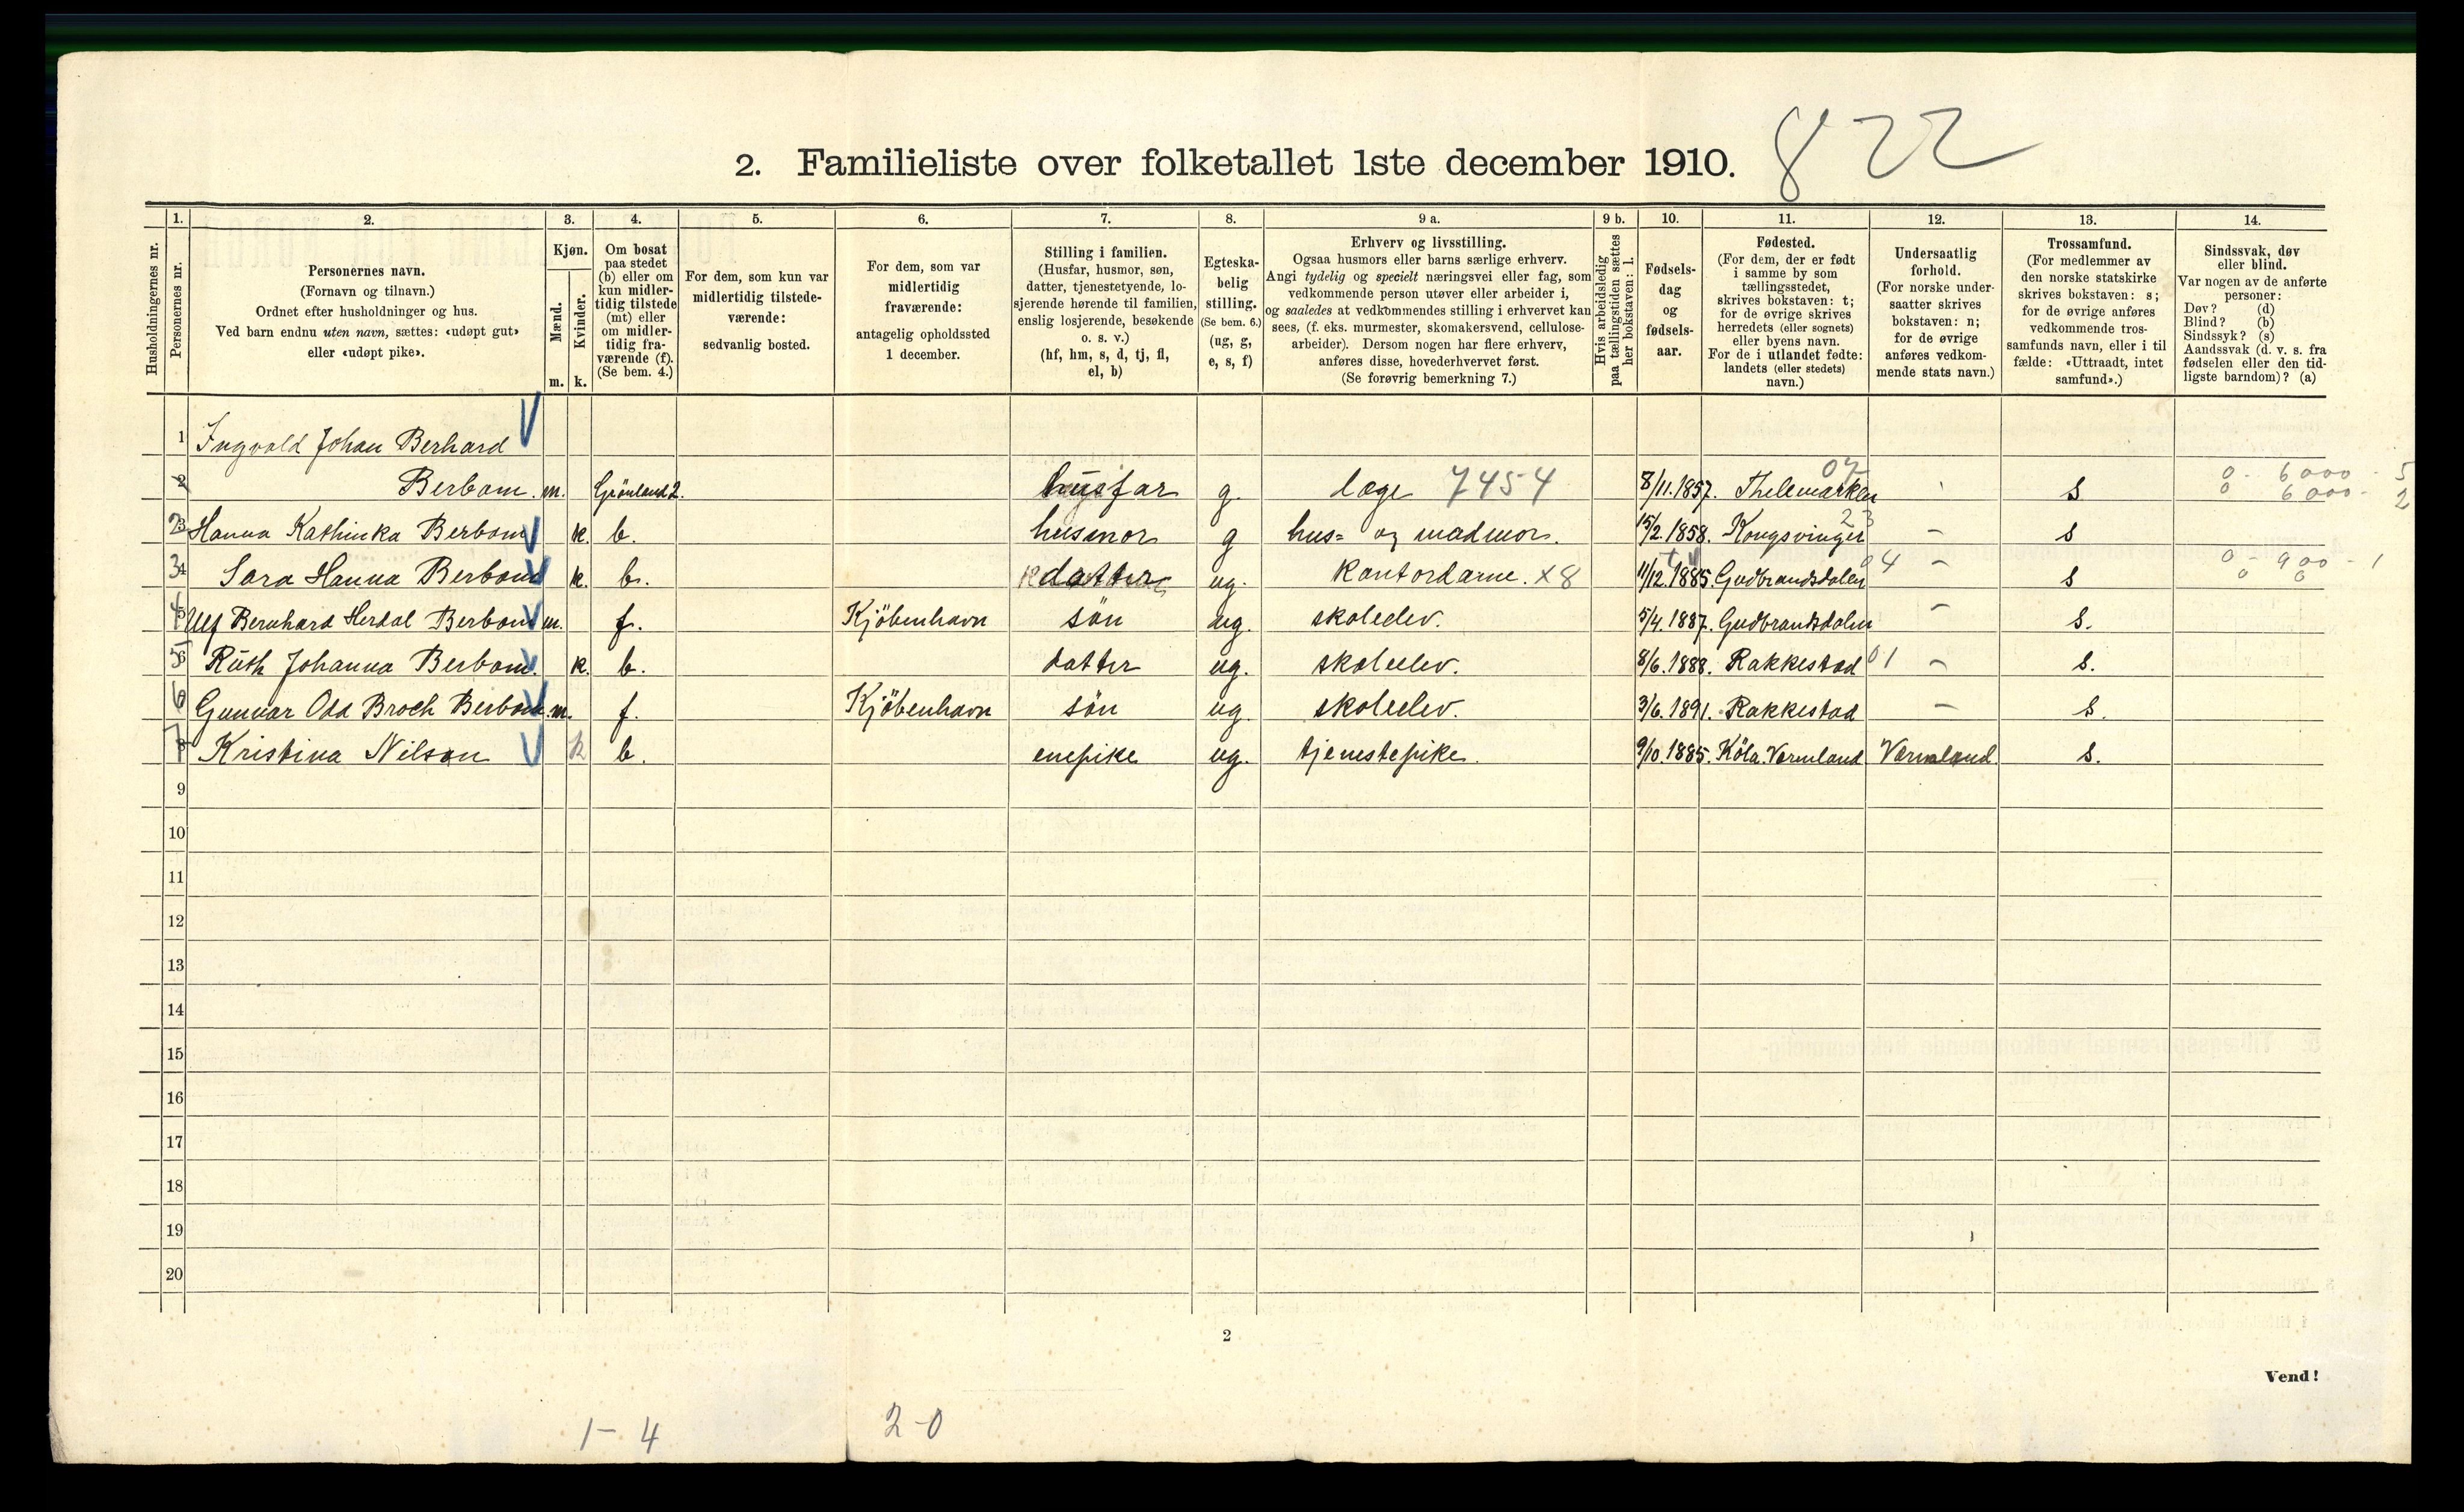 822
2. Familieliste over folketallet 1ste december 1910.
Husholdningernes nr.
1. Personernes nr.
2. Personernes navn. (Fornavn og tilnavn.) Ordnet efter husholdninger og hus. Ved barn endnu uten navn, sættes: «udøpt gut» eller «udøpt pike».
3. Kjøn. Mænd. m. Kvinder. k.
4. Om bosat paa stedet (b) eller om kun midlertidig tilstede (mt) eller om midlertidig fraværende (f). (Se bem. 4.)
5. For dem, som kun var midlertidig tilstedeværende: sedvanlig bosted.
6. For dem, som var midlertidig fraværende: antagelig opholdssted 1 december.
7. Stilling i familien. (Husfar, husmor, søn, datter, tjenestetyende, losjerende hørende til familien, enslig losjerende, besøkende o. s. v.) (hf, hm, s, d, tj, fl, el, b)
8. Egteskabelig stilling. (Se bem. 6.) (ug, g, e, s, f)
9 a. Erhverv og livsstilling. Ogsaa husmors eller barns særlige erhverv. Angi tydelig og specielt næringsvei eller fag, som vedkommende person utøver eller arbeider i, og saaledes at vedkommendes stilling i erhvervet kan sees, (f. eks. murmester, skomakersvend, cellulosearbeider). Dersom nogen har flere erhverv, anføres disse, hovederhvervet først. (Se forøvrig bemerkning 7.)
9 b. Hvis arbeidsledig paa tællingstiden sættes her bokstaven: l.
10. Fødselsdag og fødselsaar.
11. Fødested. (For dem, der er født i samme by som tællingsstedet, skrives bokstaven: t; for de øvrige skrives herredets (eller sognets) eller byens navn. For de i utlandet fødte: landets (eller stedets) navn.)
12. Undersaatlig forhold. (For norske undersaatter skrives bokstaven: n; for de øvrige anføres vedkommende stats navn.)
13. Trossamfund. (For medlemmer av den norske statskirke skrives bokstaven: s; for de øvrige anføres vedkommende trossamfunds navn, eller i tilfælde: «Uttraadt, intet samfund».)
14. Sindssvak, døv eller blind. Var nogen av de anførte personer: Døv? (d) Blind? (b) Sindssyk? (s) Aandssvak (d. v. s. fra fødselen eller den tidligste barndom)? (a)
1 Ingvald Johan Berhard
2 Berbom. m. Grönland 2. husfar g. læge 7454 8/11.1857. Thelemarken 07 s 0 - 6000 - 5 0 6000 - 2
2 3 Hanna Kathinka Berbom k. b. husmor g hus= og madmor. 15/2.1858. Kongsvinger 23 - s
3 4 Sara Hanna Berbom k. b. datter ug. Kontordame. x8 11/12.1885. Gudbrandsdalen 04 - s 0 - 900 - 1 0 0
4 5 Ulf Bernhard Herdal Berbom m. f. Kjöbenhavn sön ug. skoleelev. 5/4.1887. Gudbrandsdalen - s.
5 6 Ruth Johanna Berbom. k. b. datter ug. skoleelev. 8/6.1888. Rakkestad 01 - s.
6 Gunnar Odd Broch Berbom. m. f. Kjöbenhavn sön ug. skoleelev. 3/6.1891. Rakkestad - s.
7 8 Kristina Nilson k b. enepike ug. tjenestepike. 9/10.1885. Köla Vermland Vermland s.
9
10
11
12
13
14
15
16
17
18
19
20
2
Vend!
1 - 4
2 - 0